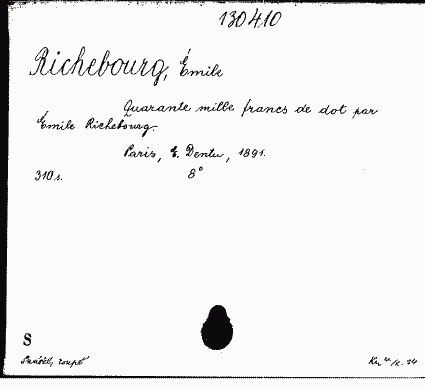 130410
Richebourg, Émile
Quarante mille francs de dot par
Émile Richebourg.
Paris, E. Dentu, 1891.
310 s. 8°
S